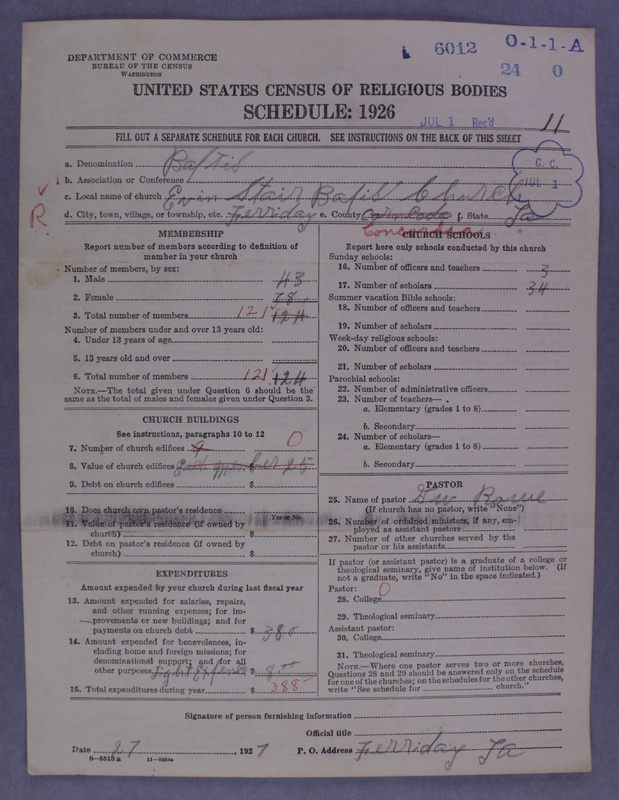 6012 O-1-1-A
24 0
DEPARTMENT OF COMMERCE
BUREAU OF THE CENSUS
WASHINGTON
UNITED STATES CENSUS OF RELIGIOUS BODIES
SCHEDULE: 1926
JUL 1 Rec'd 11
FILL OUT A SEPARATE SCHEDULE FOR EACH CHURCH. SEE INSTRUCTIONS ON THE BACK OF THIS SHEET
C. C.
JUL 1
a. Denomination Baptis
b. Association or Conference
c. Local name of church Evin Stair Bapis Church
R
d. City, town, village, or township, etc. Ferriday e. County f. State La
Concordia
MEMBERSHIP
Report number of members according to definition of
member in your church
Number of members, by sex:
1. Male 43
2. Female 78
3. Total number of members 121 124
Number of members under and over 13 years old:
4. Under 13 years of age
5. 13 years old and over
6. Total number of members 121 124
NOTE.—The total given under Question 6 should be the
same as the total of males and females given under Question 3.
CHURCH BUILDINGS
See instructions, paragraphs 10 to 12
7. Number of church edifices 0
8. Value of church edifices member 25
9. Debt on church edifices $
10. Does church own pastor's residence Yes or No
11. Value of pastor's residence (if owned by
church) $
12. Debt on pastor's residence (if owned by
church) $
EXPENDITURES
Amount expended by your church during last fiscal year
13. Amount expended for salaries, repairs,
and other running expenses; for im-
provements or new buildings; and for
payments on church debt $ 380
14. Amount expended for benevolences, in-
cluding home and foreign missions; for
denominational support; and for all
other purposes $ 8.00
15. Total expenditures during year $ 388
CHURCH SCHOOLS
Report here only schools conducted by this church
Sunday schools:
16. Number of officers and teachers 3
17. Number of scholars 34
Summer vacation Bible schools:
18. Number of officers and teachers
19. Number of scholars
Week-day religious schools:
20. Number of officers and teachers
21. Number of scholars
Parochial schools:
22. Number of administrative officers
23. Number of teachers—
a. Elementary (grades 1 to 8)
b. Secondary
24. Number of scholars—
a. Elementary (grades 1 to 8)
b. Secondary
PASTOR
25. Name of pastor S W Rowe
(If church has no pastor, write "None")
26. Number of ordained ministers, if any, em-
ployed as assistant pastors
27. Number of other churches served by the
pastor or his assistants
If pastor (or assistant pastor) is a graduate of a college or
theological seminary, give name of institution below. (If
not a graduate, write "No" in the space indicated.)
Pastor:
28. College 0
29. Theological seminary
Assistant pastor:
30. College
31. Theological seminary
NOTE.—Where one pastor serves two or more churches,
Questions 28 and 29 should be answered only on the schedule
for one of the churches; on the schedules for the other churches,
write "See schedule for church."
Signature of person furnishing information
Official title
Date 27, 1927 P. O. Address Ferriday La
8—5513a 11—9066a